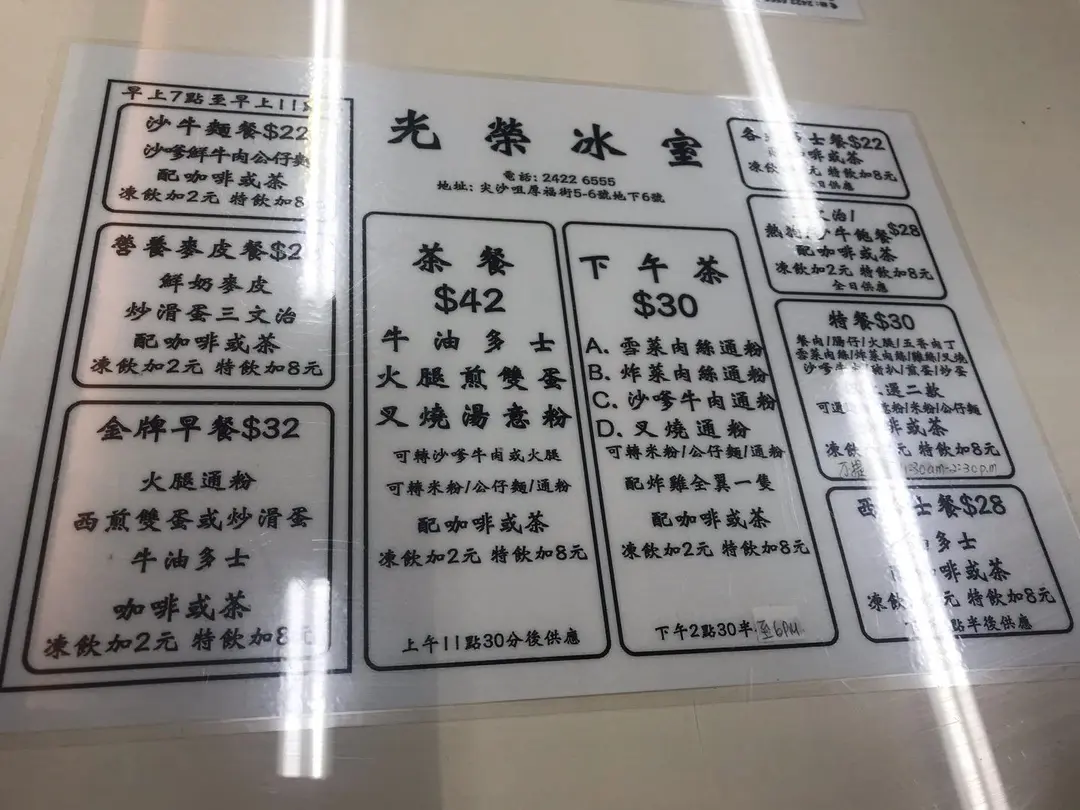 光榮冰室
電話: 2422 6555
地址: 尖沙咀厚福街5-6號地下6號
早上7點至早上11
沙牛麵餐$22
沙嗲鮮牛肉公仔麵
配咖啡或茶
凍飲加2元 特飲加8
營養麥皮餐$2
鮮奶麥皮
炒滑蛋三文治
配咖啡或茶
凍飲加2元 特飲加8元
金牌早餐$32
火腿通粉
西煎雙蛋或炒滑蛋
牛油多士
咖啡或茶
凍飲加2元 特飲加8元
茶餐
$42
牛油多士
火腿煎雙蛋
叉燒湯意粉
可轉沙嗲牛肉或火腿
可轉米粉/公仔麵/通粉
配咖啡或茶
凍飲加2元 特飲加8元
上午11點30分後供應
下午茶
$30
A. 雪菜肉絲通粉
B. 炸菜肉絲通粉
C. 沙嗲牛肉通粉
D. 叉燒通粉
可轉米粉/公仔麵/通粉
配炸雞全翼一隻
配咖啡或茶
凍飲加2元 特飲加8元
下午2點30半 至6PM
各 士餐$22
咖啡或茶
凍飲加2元 特飲加8元
全日供應
文治/
熱 沙牛飽餐$28
配咖啡或茶
凍飲加2元 特飲加8元
全日供應
特餐$30
餐肉/腸仔/火腿/五香肉丁
雪菜肉絲/炸菜肉絲/雞絲/叉燒
沙嗲牛 豬扒/煎蛋/炒蛋
選二款
可選 意粉/米粉/公仔麵
啡或茶
凍飲 元 特飲加8元
30am-2:30p.m
西 士餐$28
多士
啡或茶
凍飲 元 特飲加8元
點半後供應